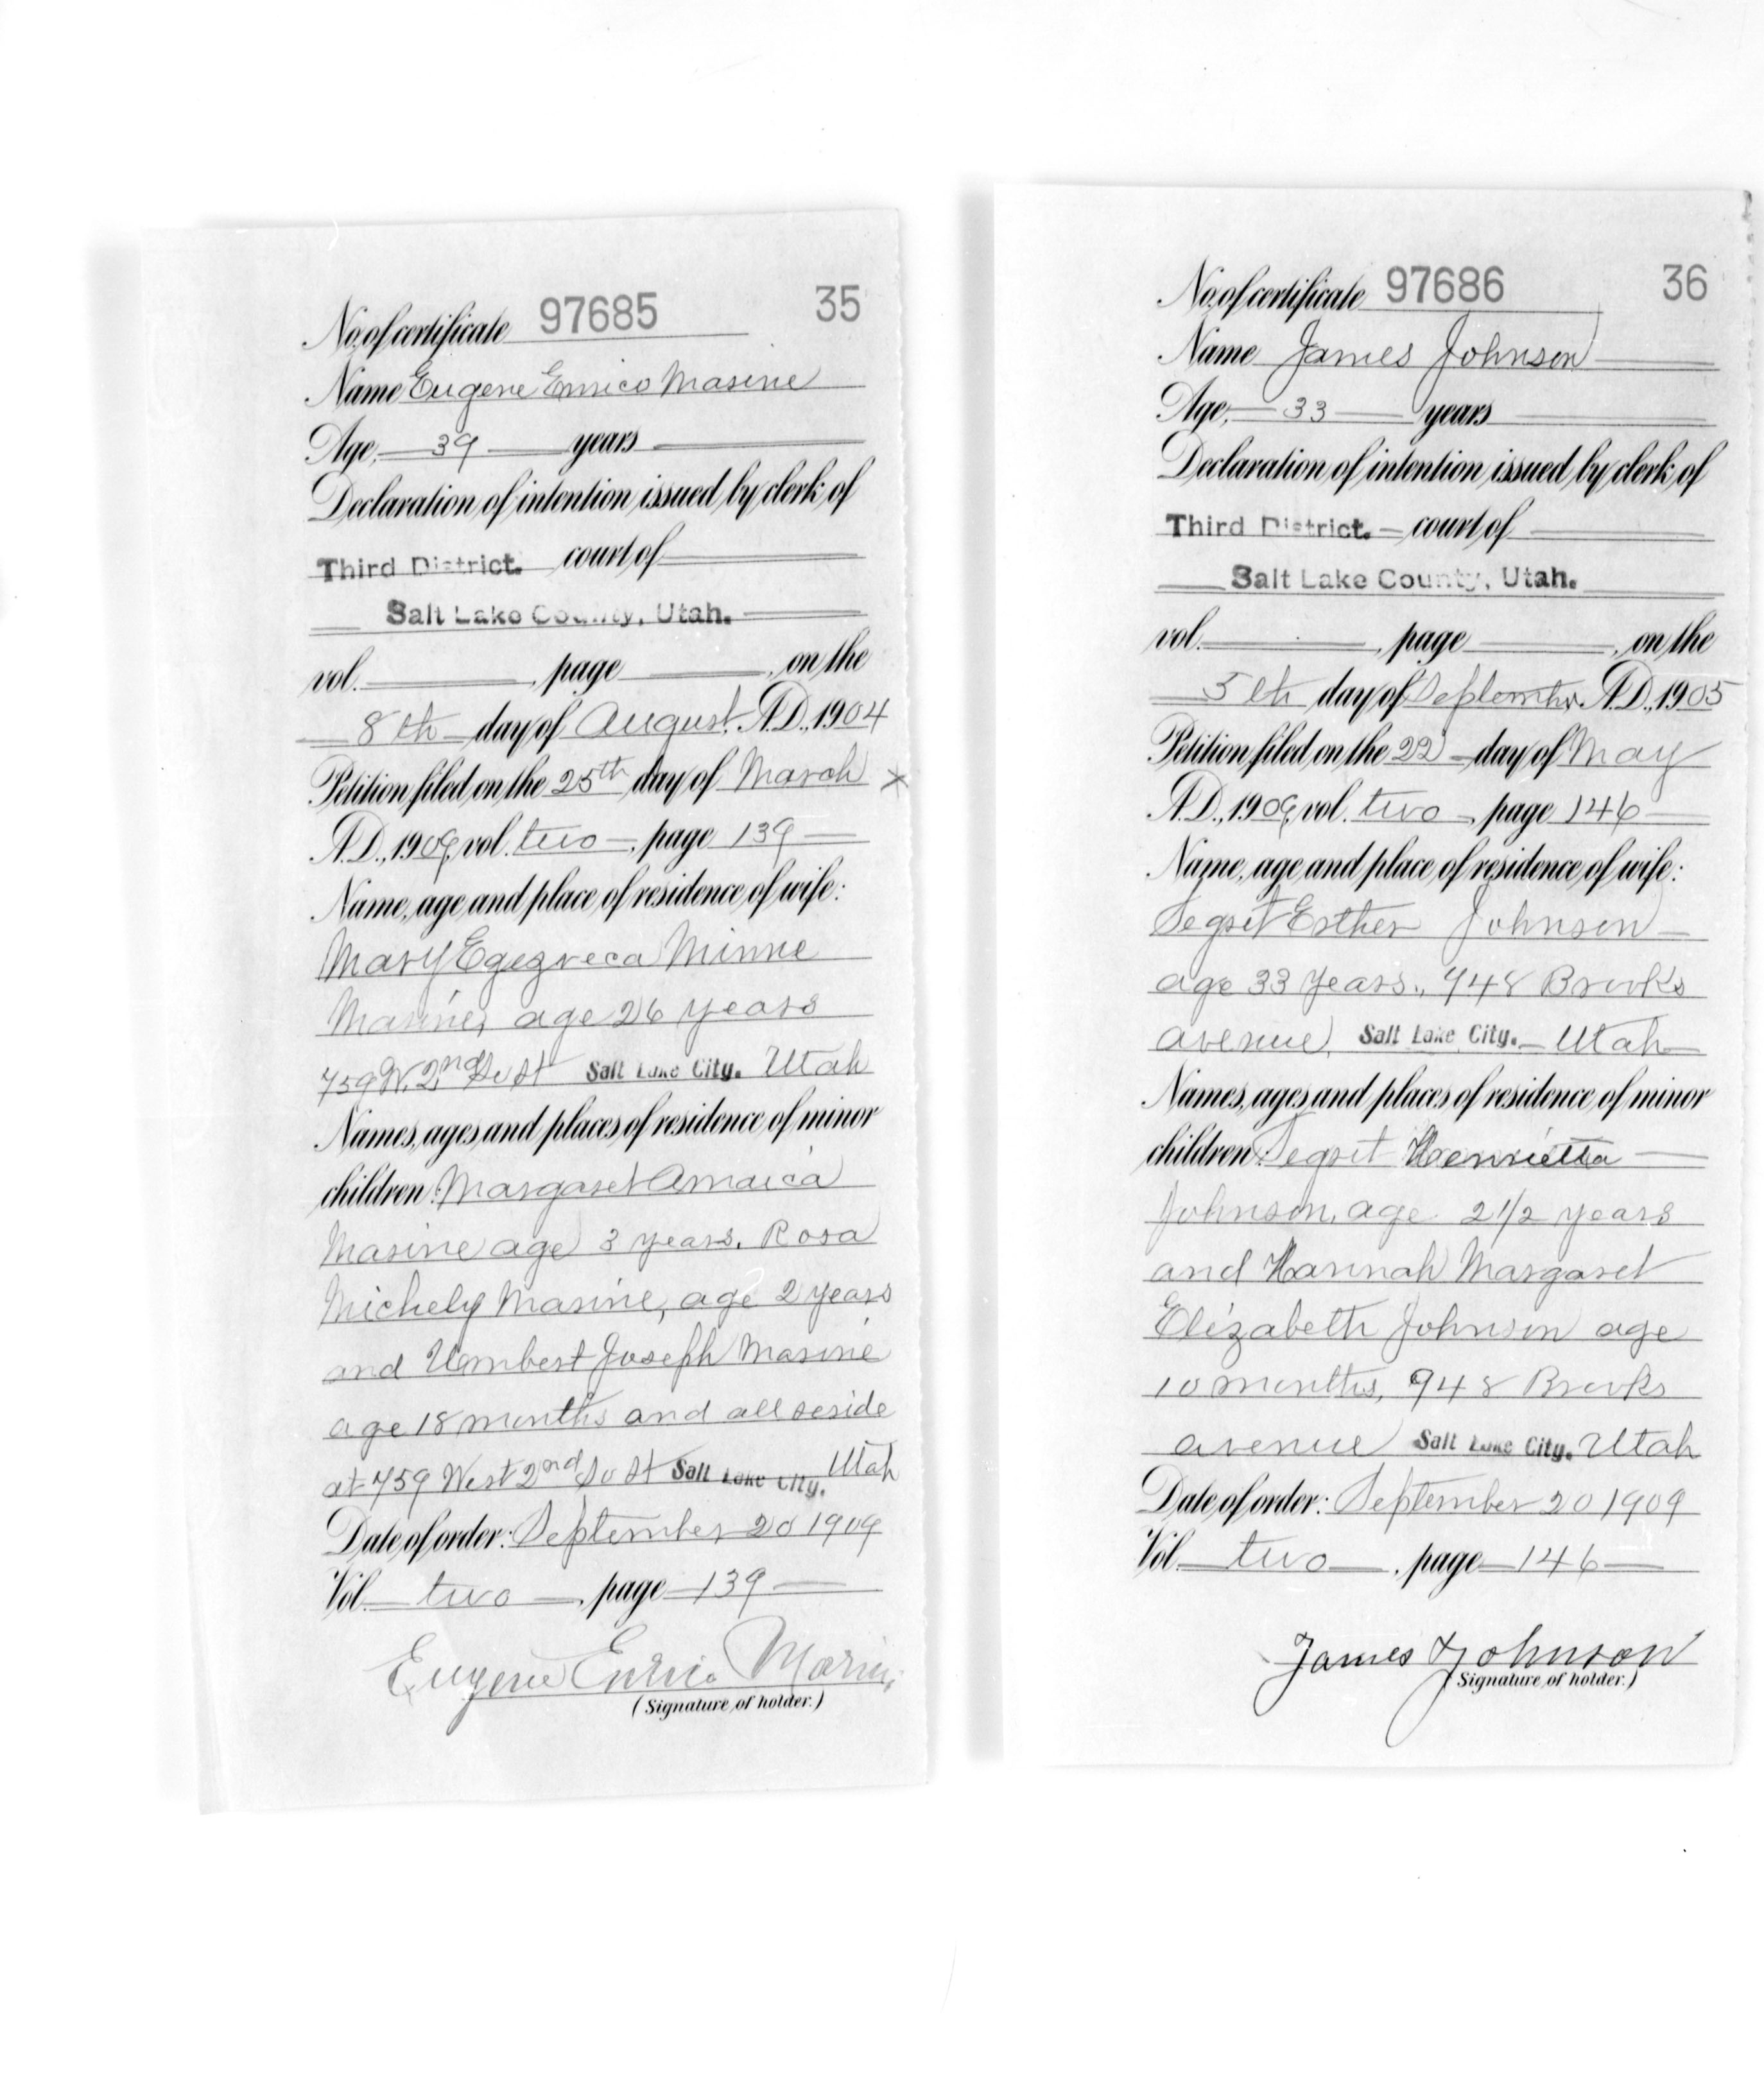 No. of certificate 97685 35
Name Eugene Enrico Masine
Age, 39 years
Declaration of intention issued by clerk of
Third District. court of
Salt Lake County, Utah.
vol. , page , on the
8th day of August, A.D., 1904
Petition filed on the 25th day of March ×
A.D., 1909, vol. two, page 139
Name, age and place of residence of wife:
Mary Minne
Masine, age 26 years
759 W. 2nd So St Salt Lake City. Utah
Names, ages and places of residence of minor
children: Margaret Amaica
Masine age 3 years. Rosa
Michely Masine, age 2 years
and Umbert Joseph Masine
age 18 months and all reside
at 759 West 2nd So St Salt Lake City. Utah
Date of order: September 20 1909
Vol. two, page 139
Eugene Enrico
(Signature of holder.)
No. of certificate 97686 36
Name James Johnson
Age, 33 years
Declaration of intention issued by clerk of
Third District. court of
Salt Lake County, Utah.
vol. , page , on the
5th day of September A.D., 1905
Petition filed on the 22 day of May
A.D., 1909, vol. two, page 146
Name, age and place of residence of wife:
Segrit Esther Johnson
age 33 years., 948 Brooks
avenue, Salt Lake City. Utah
Names, ages and places of residence of minor
children: Segrit Henrietta
Johnson, age 2 1/2 years
and Hannah Margaret
Elizabeth Johnson age
10 months, 948 Brooks
avenue Salt Lake City. Utah
Date of order: September 20 1909
Vol. two, page 146
James Johnson
(Signature of holder.)